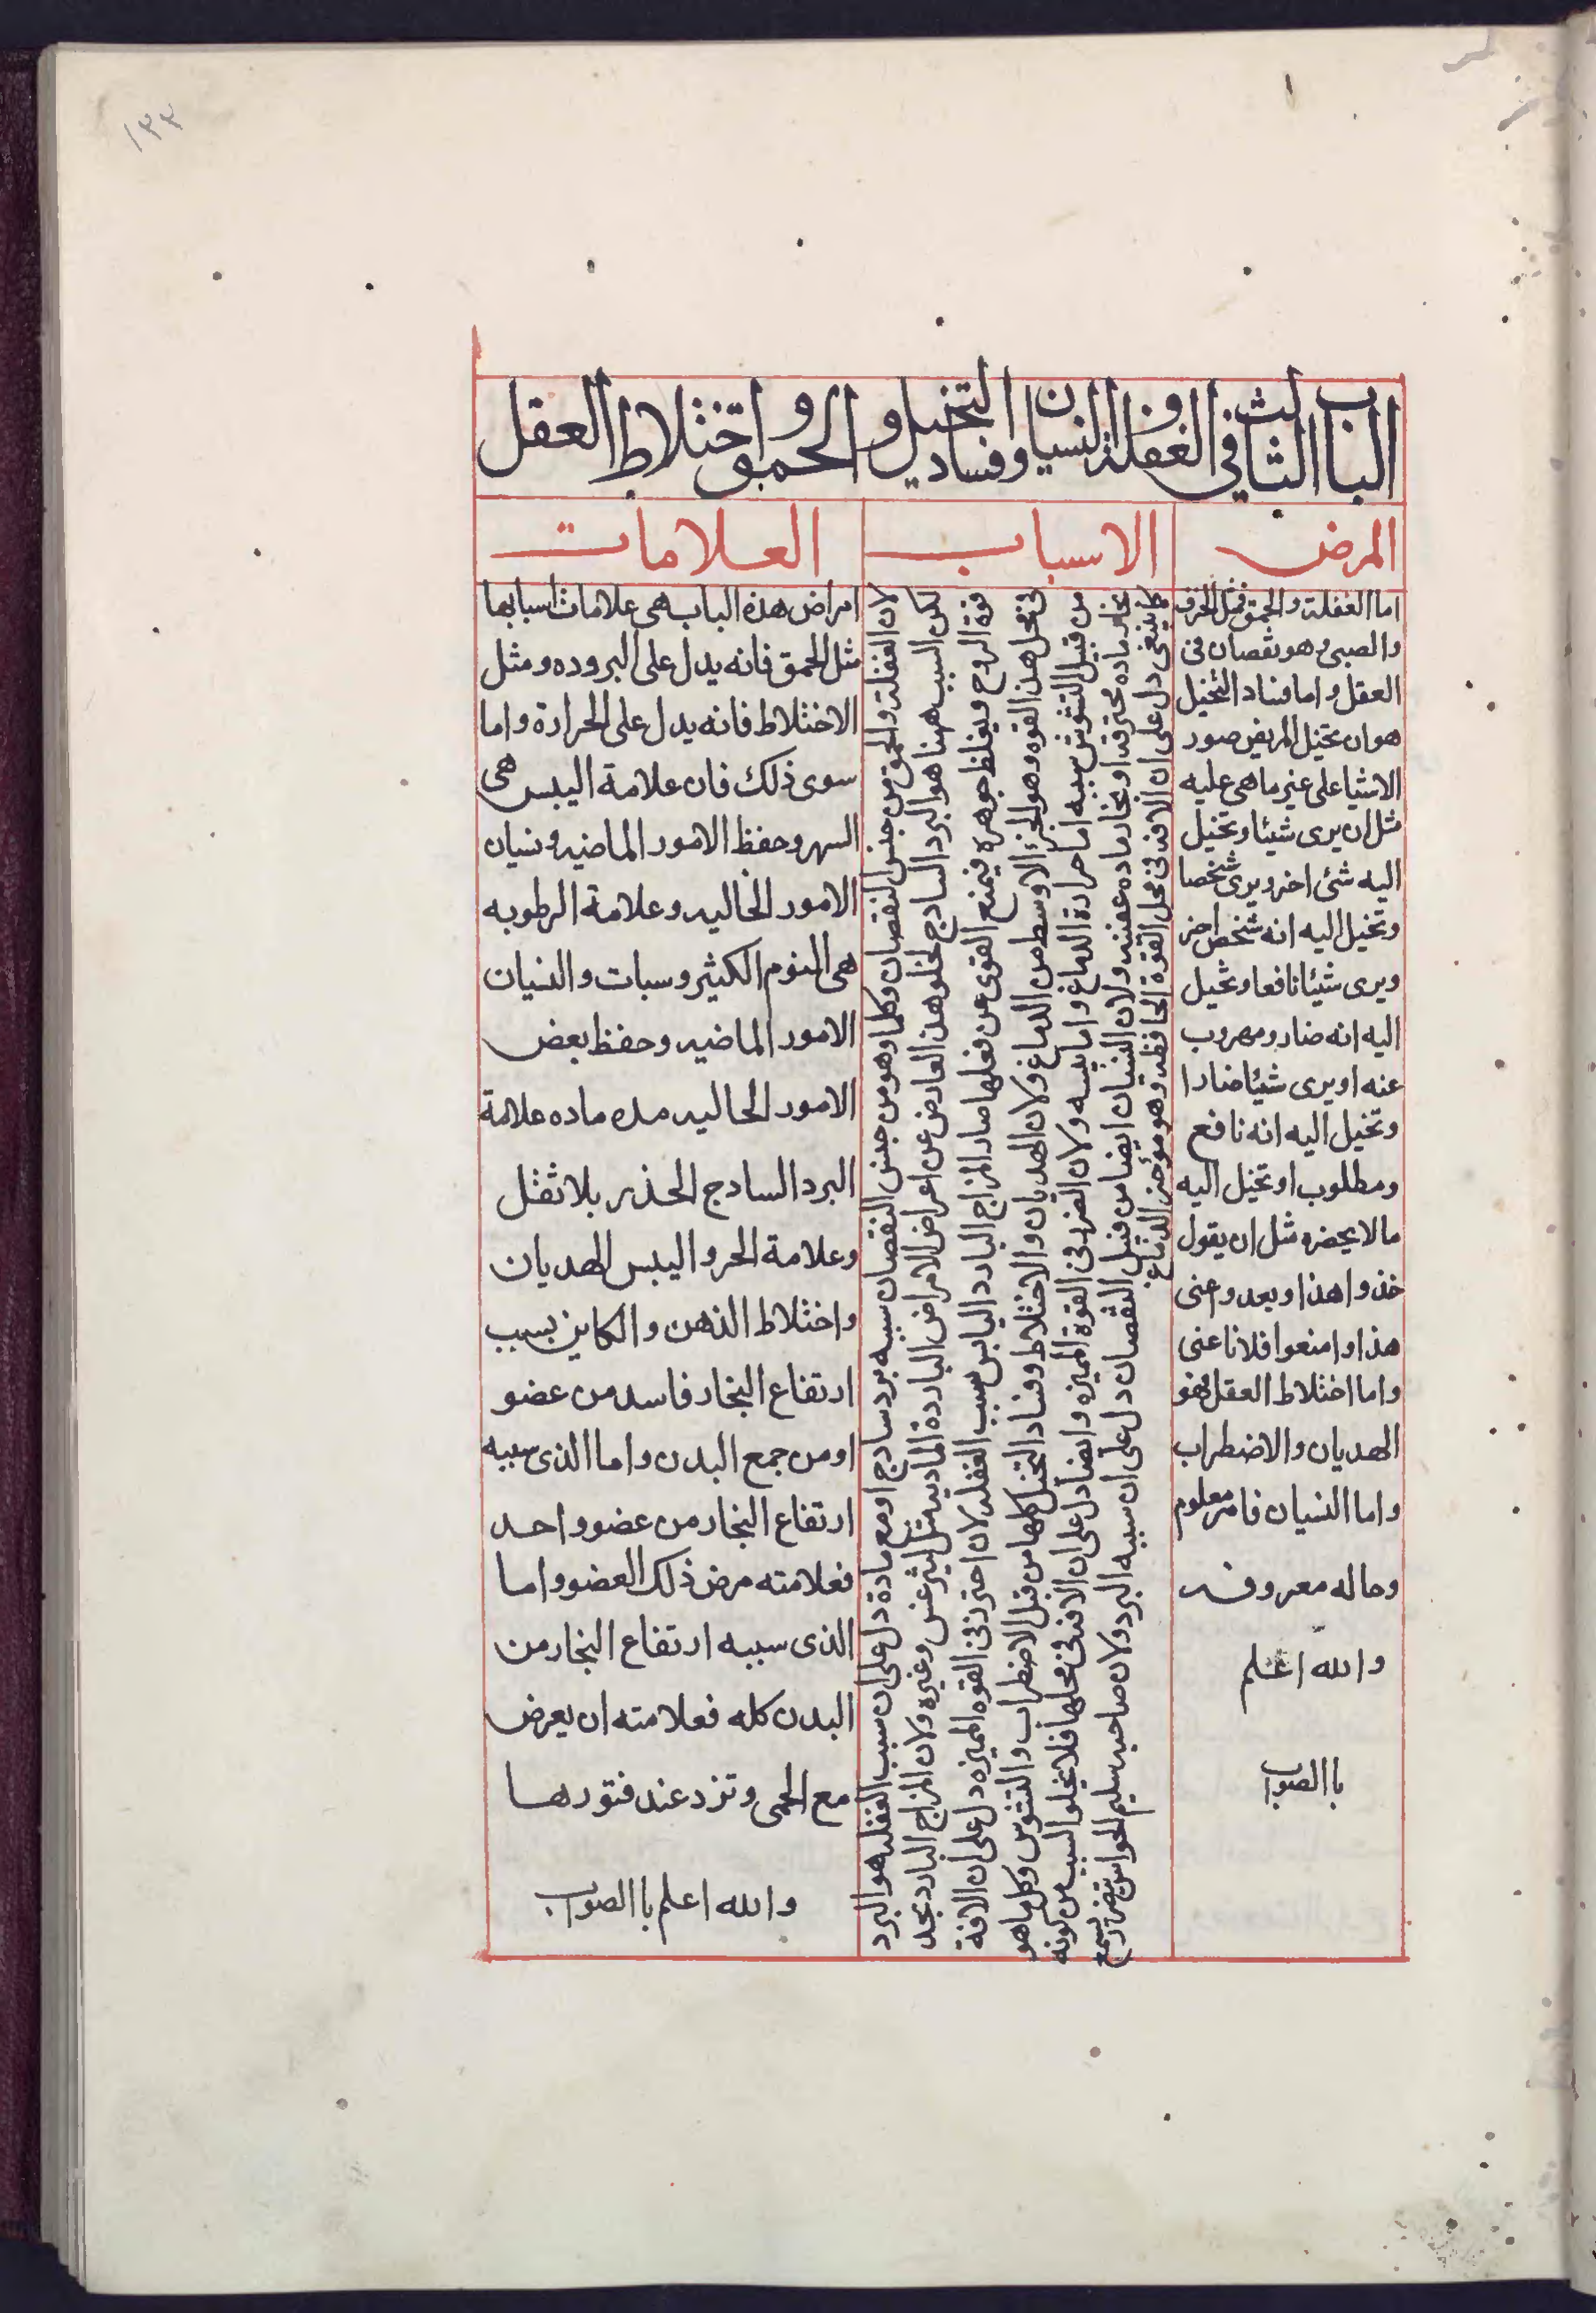 ١٣٣
الباب الثالث في الغفلة والنسيان وفساد التخيل والحمق واختلاط العقل
المرض
الاسباب
العلامات
اما الغفلة والحمق فمثل الخرف
والصبى وهو نقصان فى
العقل واما فساد التخيل
هو ان تخيل المريض صور
الاشيا على غير ما هى عليه
مثل ان يرى شيئا وتخيل
اليه شئ اخر ويرى شخصا
وتخيل اليه انه شخص اخر
ويرى شيئا نافعا وتخيل
اليه انه ضار ومهروب
عنه او يرى شيئا ضارا
وتخيل اليه انه نافع
ومطلوب او تخيل اليه
ما لا يحضره مثل ان يقول
خذوا هذا وبعدوا عنى
هذا وامنعوا فلانا عنى
واما اختلاط العقل فهو
الهديان والاضطراب
واما النسيان فامر معلوم
وحاله معروفه
والله اعلم
باالصواب
لان الغفلة والحمق من جنس النقصان وكلما وهو من جنس النقصان سببه برد سادج او مع مادة دل على ان سبب الغفله هو البرد
لكن السبب ههنا هو البرد السادج لخلو هذا العارض عن اعراض الامراض الباردة الماديه مثل ليثرغس وغيره ولان المزاج البارد يجد
قوة الروح ويغلظ جوهره فيمنع القوى عن فعلها صار المزاج البارد اليابس سبب الغفله لان احترز فى القوه المميزه دل على ان الافة
فى محل هذا القوه وهو الجزء الاوسط من الدماغ ولان الهديان والاختلاط وفساد التخيل كلها من قبل الاضطراب والتشوش وكل ما هو
من قبيل التشوش سببه اما حرارة الدماغ واما يبسه ولان الضرر فى القوة المميزه وايضا دل على ان الافه فى محلها فلا يخلو السبب من كونه
بخار ماده محترقه او بخار ماده عفنه ولان النسيان ايضا من قبيل النقصان دل على ان سببه البرد ولان صاحبه سليم الحواس يبصر ويسمع
ما ينبغى دل على ان الافه فى محل القوة الحافظه وهو مؤخر الدماغ
امراض هذه الباب هى علامات اسبابها
مثل الحمق فانه يدل على البروده ومثل
الاختلاط فانه يدل على الحرارة واما
سوى ذلك فان علامة اليبس هى
السهر وحفظ الامور الماضيه ونسيان
الامور الخاليه وعلامة الرطوبه
هى النوم الكثير وسبات والنسيان
الامور الماضيه وحفظ بعض
الامور الحاليه مده ماده علامة
البرد السادج الحذر بلا ثقل
وعلامة الحر واليبس الهديان
واختلاط الذهن والكاين بسبب
ارتفاع البخار فاسد من عضو
او من جمع البدن واما الذى سببه
ارتفاع البخار من عضو واحد
فعلامته مرض ذلك العضو واما
الذى سببه ارتفاع البخار من
البدن كله فعلامته ان يعرض
مع الحمى وتزد عند فتورها
والله اعلم باالصواب